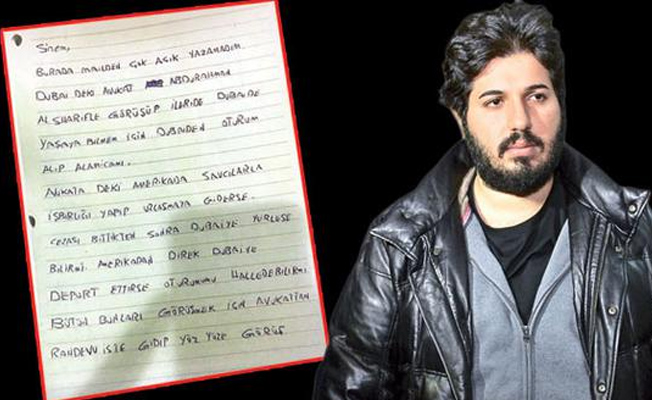 SİNEM,
BURADA MAİLDEN ÇOK AÇIK YAZAMADIM
DUBAİ DEKİ AVUKAT ABDURAHMAN
ALSHARİFLE GÖRÜŞÜP İLERİDE DUBAİDE
YAŞAYA BİLMEM İÇİN DUBAİDEN OTURUM
ALIP ALAMICAMI.
AVKATA DEKİ AMERİKADA SAVCILARLA
İŞBİRLİĞİ YAPIP UZLAŞMAYA GİDERSE.
CEZASI BİTTİKTEN SONRA DUBAİYE YERLEŞE
BİLİRMİ. AMERİKADAN DİREK DUBAİYE
DEPORT ETTİRSE OTURUMU HALLEDEBİLİRMİ
BÜTÜN BUNLARI GÖRÜŞMEK İÇİN AVUKATTAN
RANDEVU İSTE GİDİP YÜZ YÜZE GÖRÜŞ